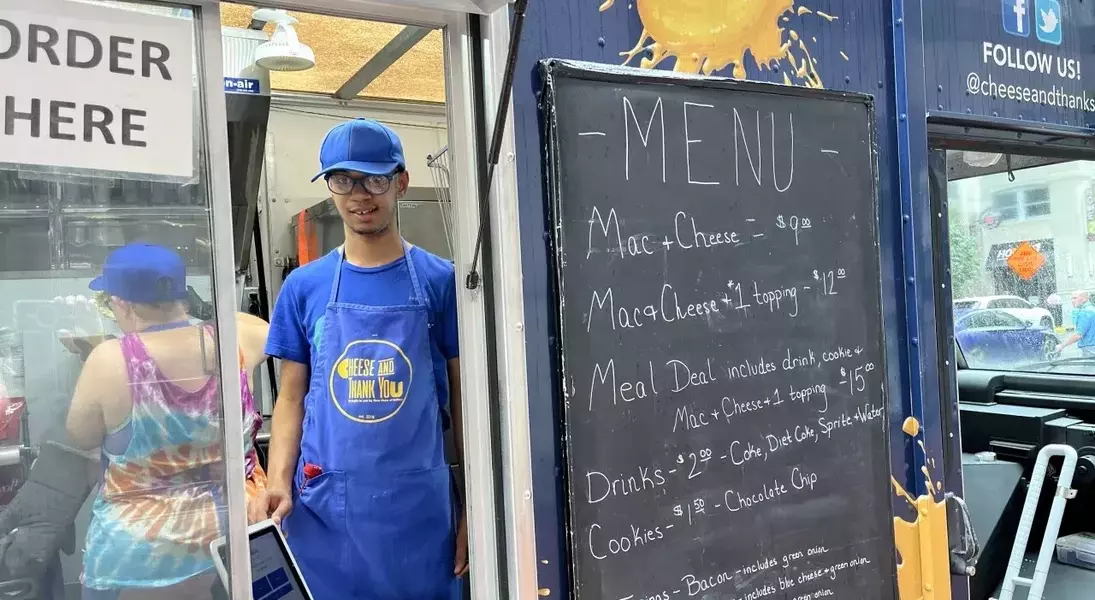 ORDER
HERE
n-air
CHEESE AND
THANK YOU
- MENU -
Mac + Cheese - $9.00
Mac & Cheese + 1 topping - $12.00
Meal Deal includes drink, cookie +
Mac + Cheese + 1 topping - $15.00
Drinks - $2.00 - Coke, Diet Coke, Sprite + Water
Cookies - $1.50 - Chocolate Chip
Bacon - includes green onion
includes blue cheese + green onion
green onion
f
FOLLOW US!
@cheeseandthanks